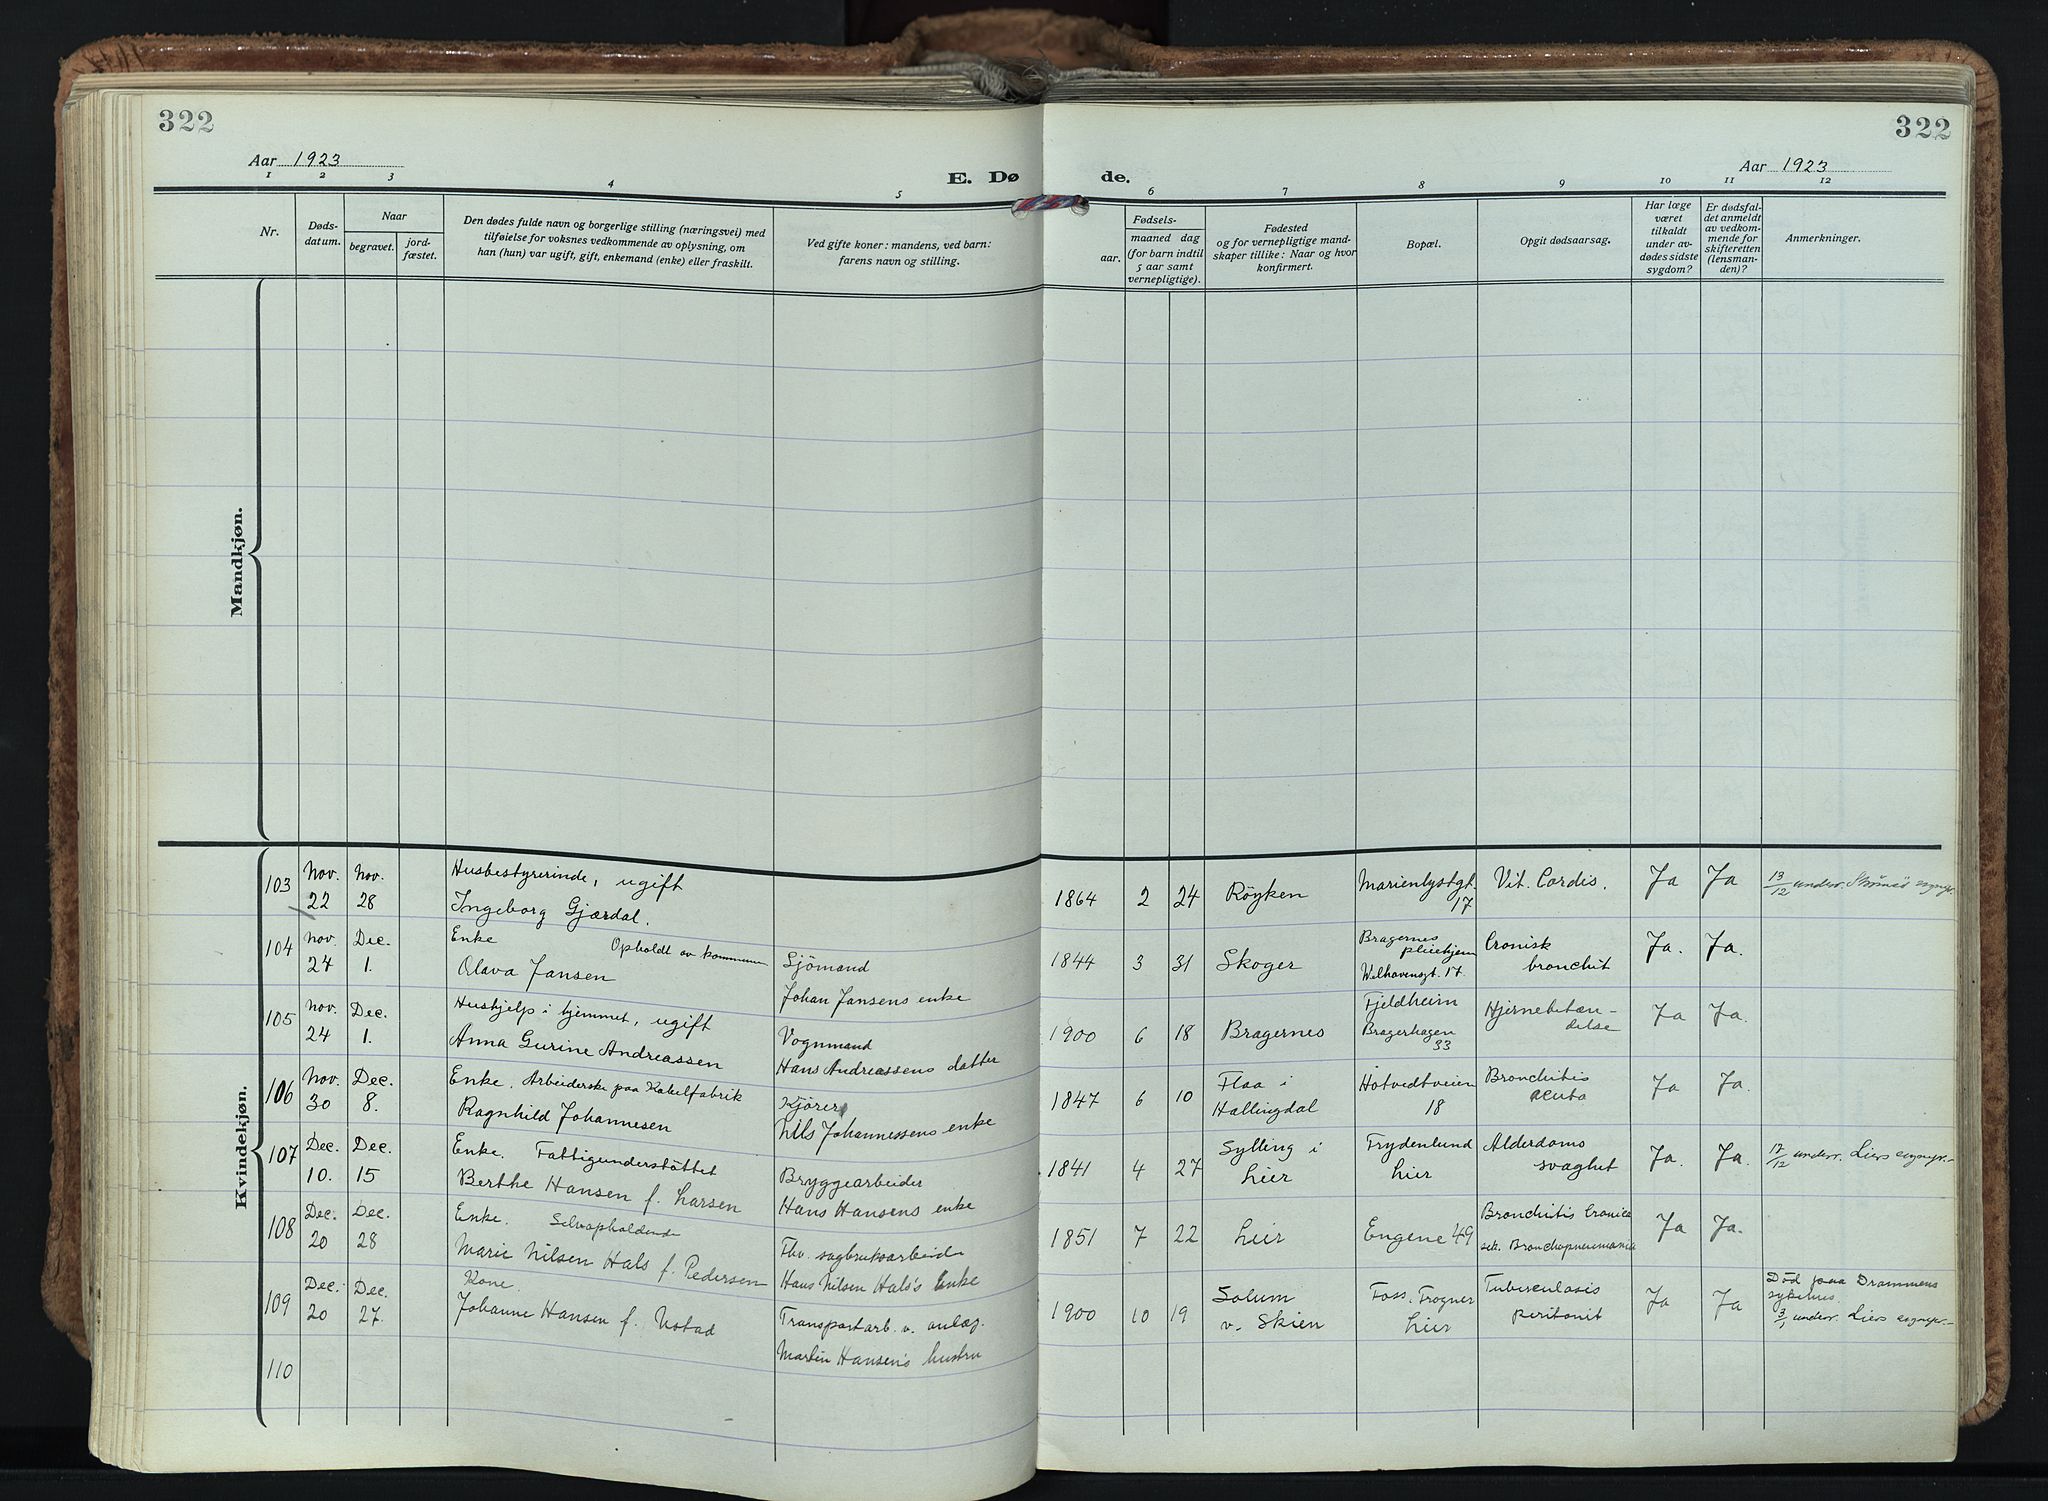 322
322
Aar 1923
E. Dø
de.
Aar 1923
1 2 3 4 5 6 7 8 9 10 11 12
Nr.
Døds-
datum.
Naar
begravet.
jord-
fæstet.
Den dødes fulde navn og borgerlige stilling (næringsvei) med
tilføielse for voksnes vedkommende av oplysning, om
han (hun) var ugift, gift, enkemand (enke) eller fraskilt.
Ved gifte koner: mandens, ved barn:
farens navn og stilling.
Fødsels-
aar.
maaned dag
(for barn indtil
5 aar samt
vernepligtige).
Fødested
og for vernepligtige mand-
skaper tillike: Naar og hvor
konfirmert.
Bopæl.
Opgit dødsaarsag.
Har læge
været
tilkaldt
under av-
dødes sidste
sygdom?
Er dødsfal-
det anmeldt
av vedkom-
mende for
skifteretten
(lensman-
den)?
Anmerkninger.
Mandkjøn.
Kvindekjøn.
103
Nov. 22
Nov. 28
Husbestyrerinde, ugift
Ingeborg Gjærdal.
1864 2 24
Røyken
Marienlystgt.
17
Vit. Cordis.
Ja Ja
13/12 underr. Strømsø sognepr.
104
Nov. 24
Dec. 1.
Enke Opholdt av kommunen
Olava Jansen
Sjömand
Johan Jansens enke
1844 3 31
Skoger
Bragernes
pleiehjem
Welhavensgt. 17.
Cronisk
bronchit
Ja. Ja.
105
Nov. 24
Dec. 1.
Hushjelp i hjemmet, ugift
Anna Gurine Andreassen
Vognmand
Hans Andreassens datter
1900 6 18
Bragernes
Fjeldheim
Bragerhagen
33
Hjernebetæn-
delse
Ja Ja.
106
Nov. 30
Dec. 8.
Enke. Arbeiderske paa Kabelfabrik
Ragnhild Johannesen
Kjører
Nils Johannessens enke
1847 6 10
Flaa i
Hallingdal
Hotvedtveien
18
Bronchitis
acuta
Ja Ja.
107
Dec. 10.
Dec. 15
Enke. Fattigunderstöttet
Berthe Hansen f. Larsen
Bryggearbeider
Hans Hansens enke
1841 4 27
Sylling i
Lier
Frydenlund
Lier
Alderdoms
svaghet
Ja. Ja.
17/12 underr. Liers sognepr.
108
Dec. 20
Dec. 28
Enke. Selvopholdende
Marie Nilsen Hals f. Pedersen
Fhv. sagbruksarbeider
Hans Nilsen Hals's Enke
1851 7 22
Lier
Engene 49
Bronchitis Cronica
sek. Bronchopneumonie
Ja Ja.
109
Dec. 20
Dec. 27.
Kone
Johanne Hansen f. Nstad
Transportarb. v. anlæg.
Martin Hansen's hustru
1900 10 19
Solum
v. Skien
Foss. Frogner
Lier
Tuberculosis
peritonit
Ja Ja
Död paa Drammens
sykehus
3/1 underr. Liers sognepr.
110